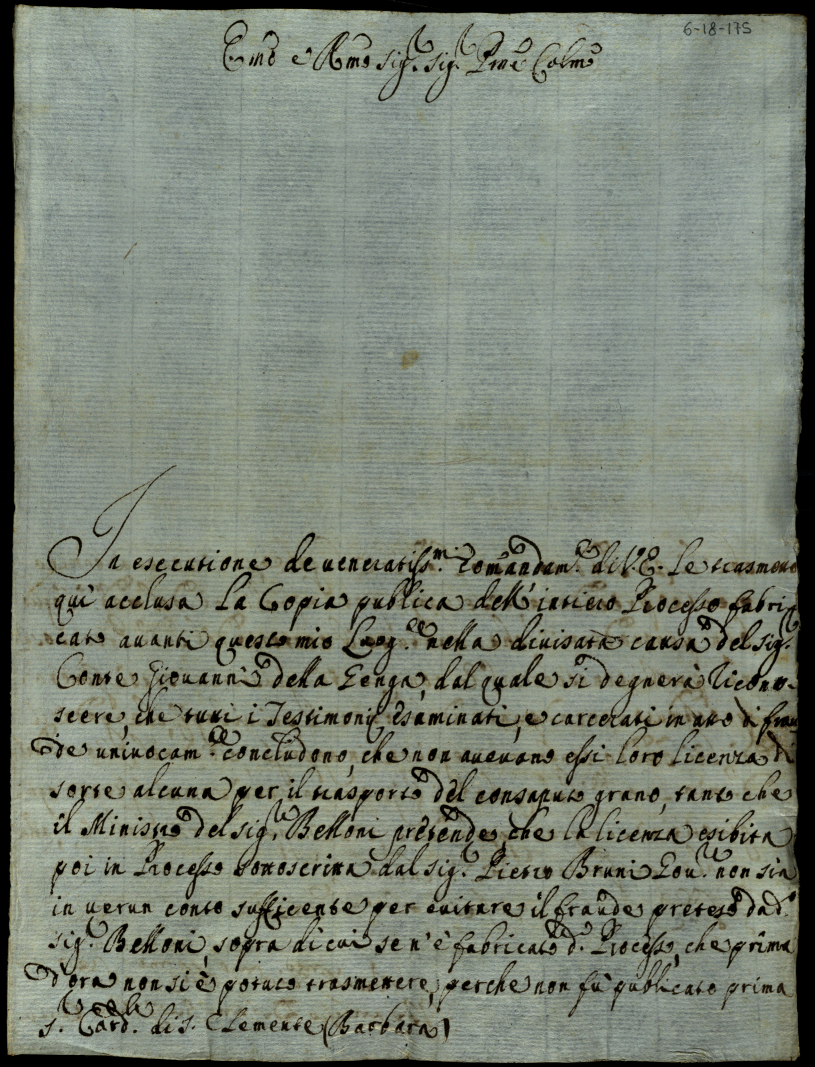 6-18-175
Emo e Rmo Sig.r Sig.r Pne Colmo
In esecutione de veneratiss.mi Comandam.ti di V.E. Le trasmetto
qui acclusa La Copia publica dell'intiero Processo fabri-
cato avanti questo mio Luog.te nella divisata causa del Sig.r
Conte Giovanni della Genga, dal quale si degnerà ricono-
scere, che tutti i Testimonij esaminati, e carcerati in atto di frau
de univocam.te concludono, che non avevano essi loro licenza di
sorte alcuna per il trasporto del consaputo grano, tanto che
il Ministro del sig.r Belloni pretende, che la licenza esibita
poi in Processo sottoscritta dal sig.r Pietro Bruni Gov.re non sia
in verun conto sufficente per evitare il fraude preteso da d.o
sig.r Belloni, sopra di cui se n'è fabricato d.o Processo, che prima
d'ora non si è potuto trasmettere, perche non fù publicato prima
s.r Card.le di S. Clemente (Barbara)